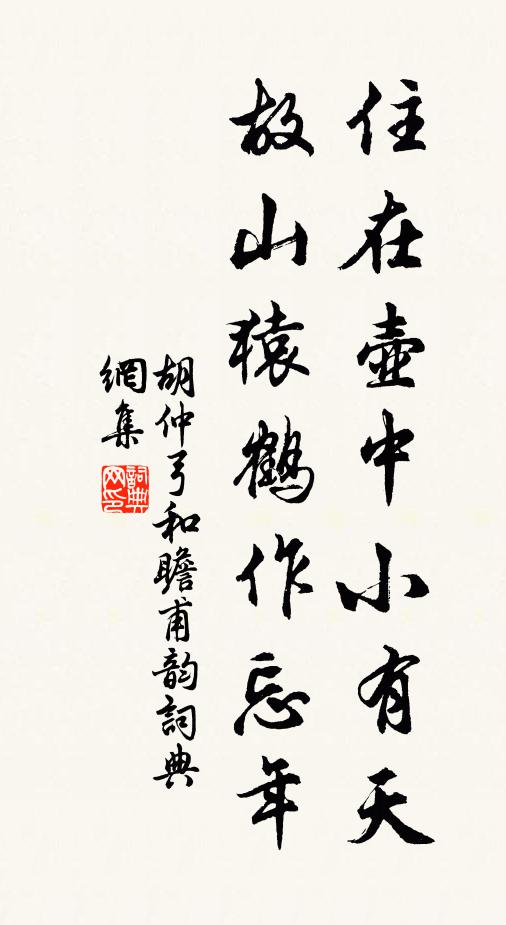 住在壺中小有天
故山猿鶴作忘年
胡仲弓和瞻甫韵詞典
網集
詞典網印